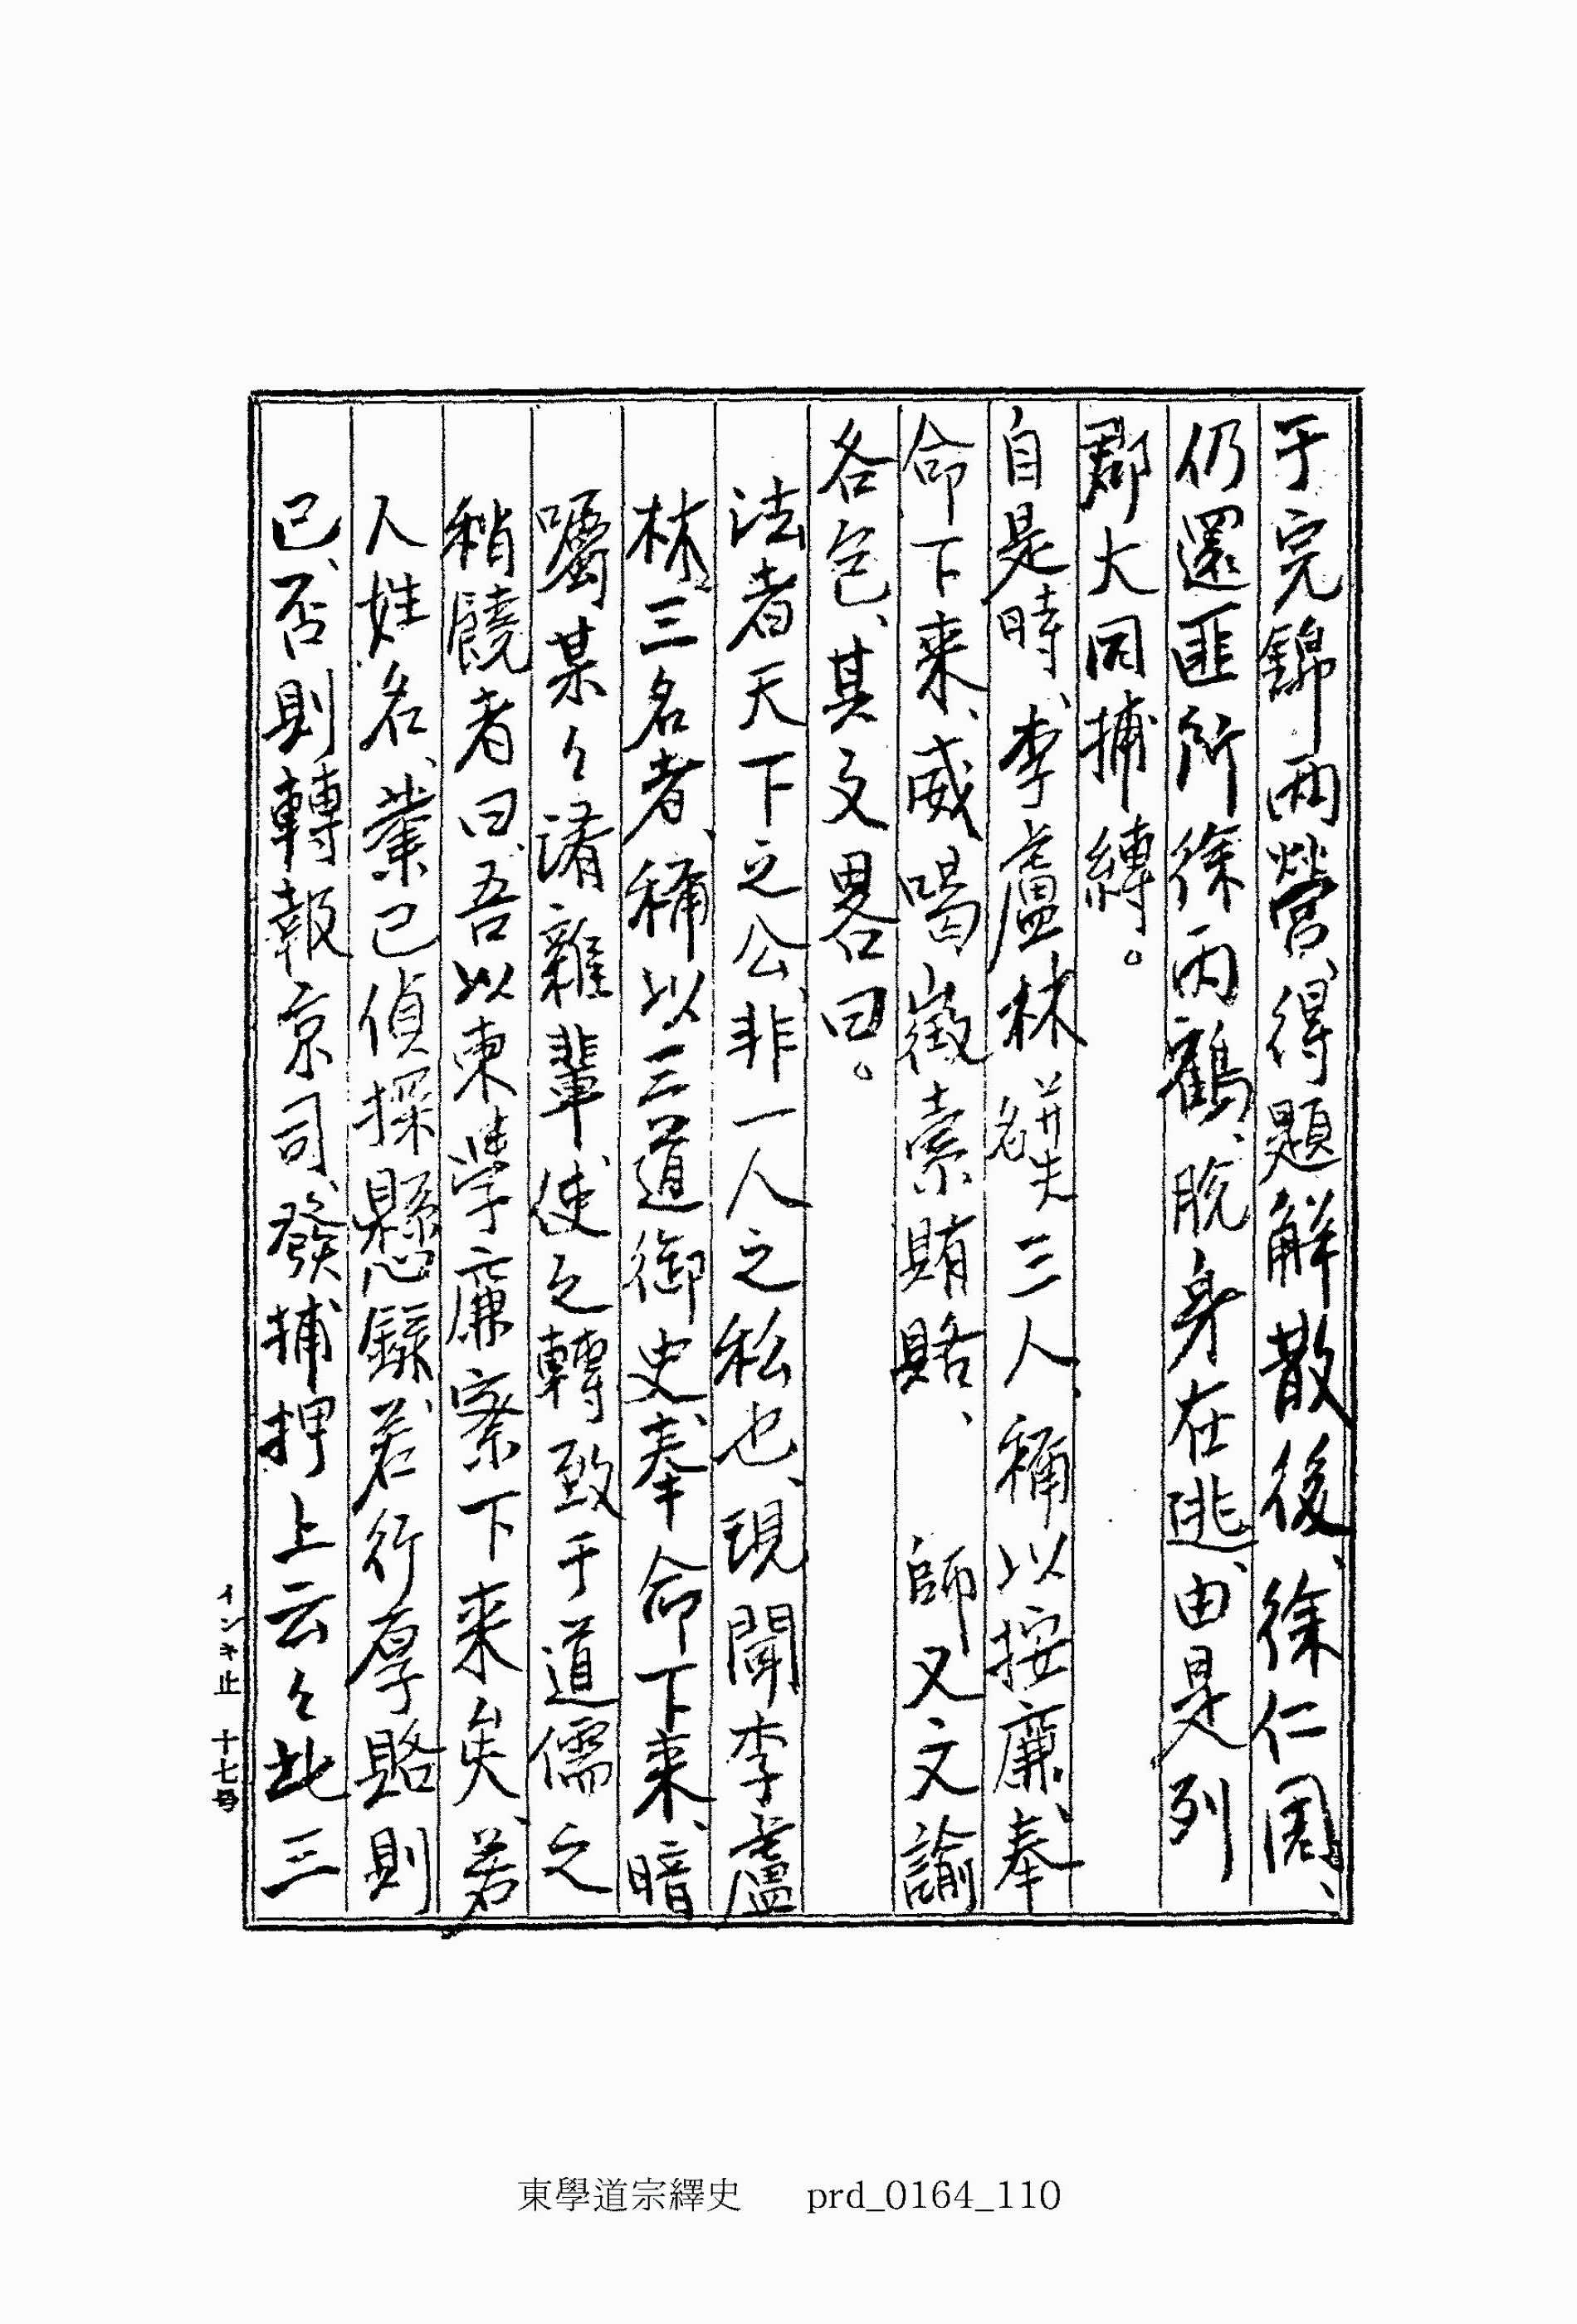 于完錦兩營、得題解散後、徐仁周、
仍還匪所、徐丙鶴、脫身在逃、由是列
郡大同捕縛。
自是時、李盧林 幷失名 三人、稱以按廉、奉
命下来、威喝徵索賄賂、 師又文諭
各包、其文畧曰。
法者天下之公、非一人之私也、現聞李盧
林三名者、稱以三道御史、奉命下来、暗
囑某々諸雜輩、使之轉致于道儒之
稍饒者曰、吾以東學廉察下来矣、若
人姓名、業已偵探懸錄、若行厚賂則
已、否則轉報京司、發捕押上云々此三
インキ止 十七号
東學道宗繹史 prd_0164_110